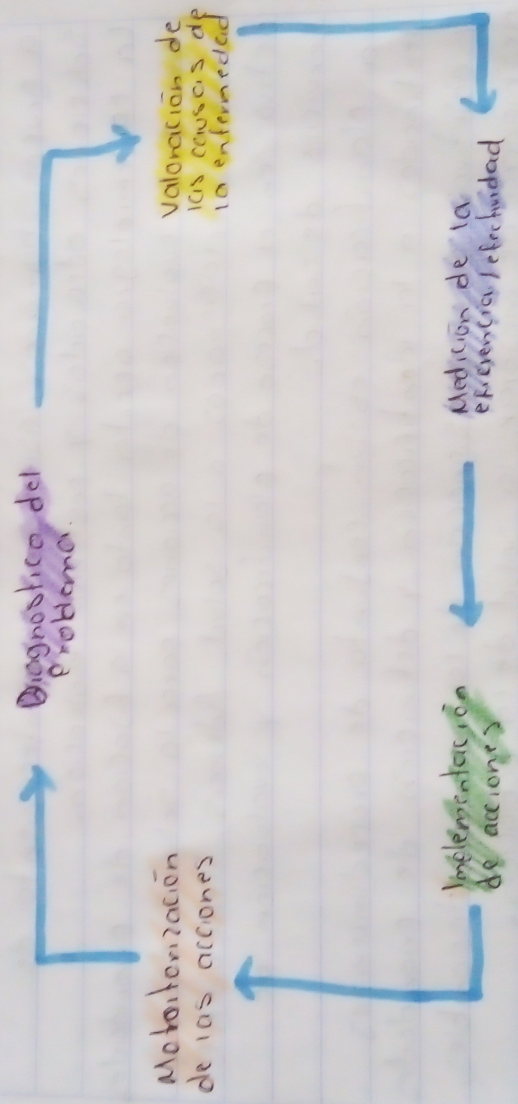 Diagnostico del
Problema.
Valoración de
las causas de
la enfermedad
Medición de la
eficiencia/efectividad
Implementación
de acciones
Motoitorización
de las acciones